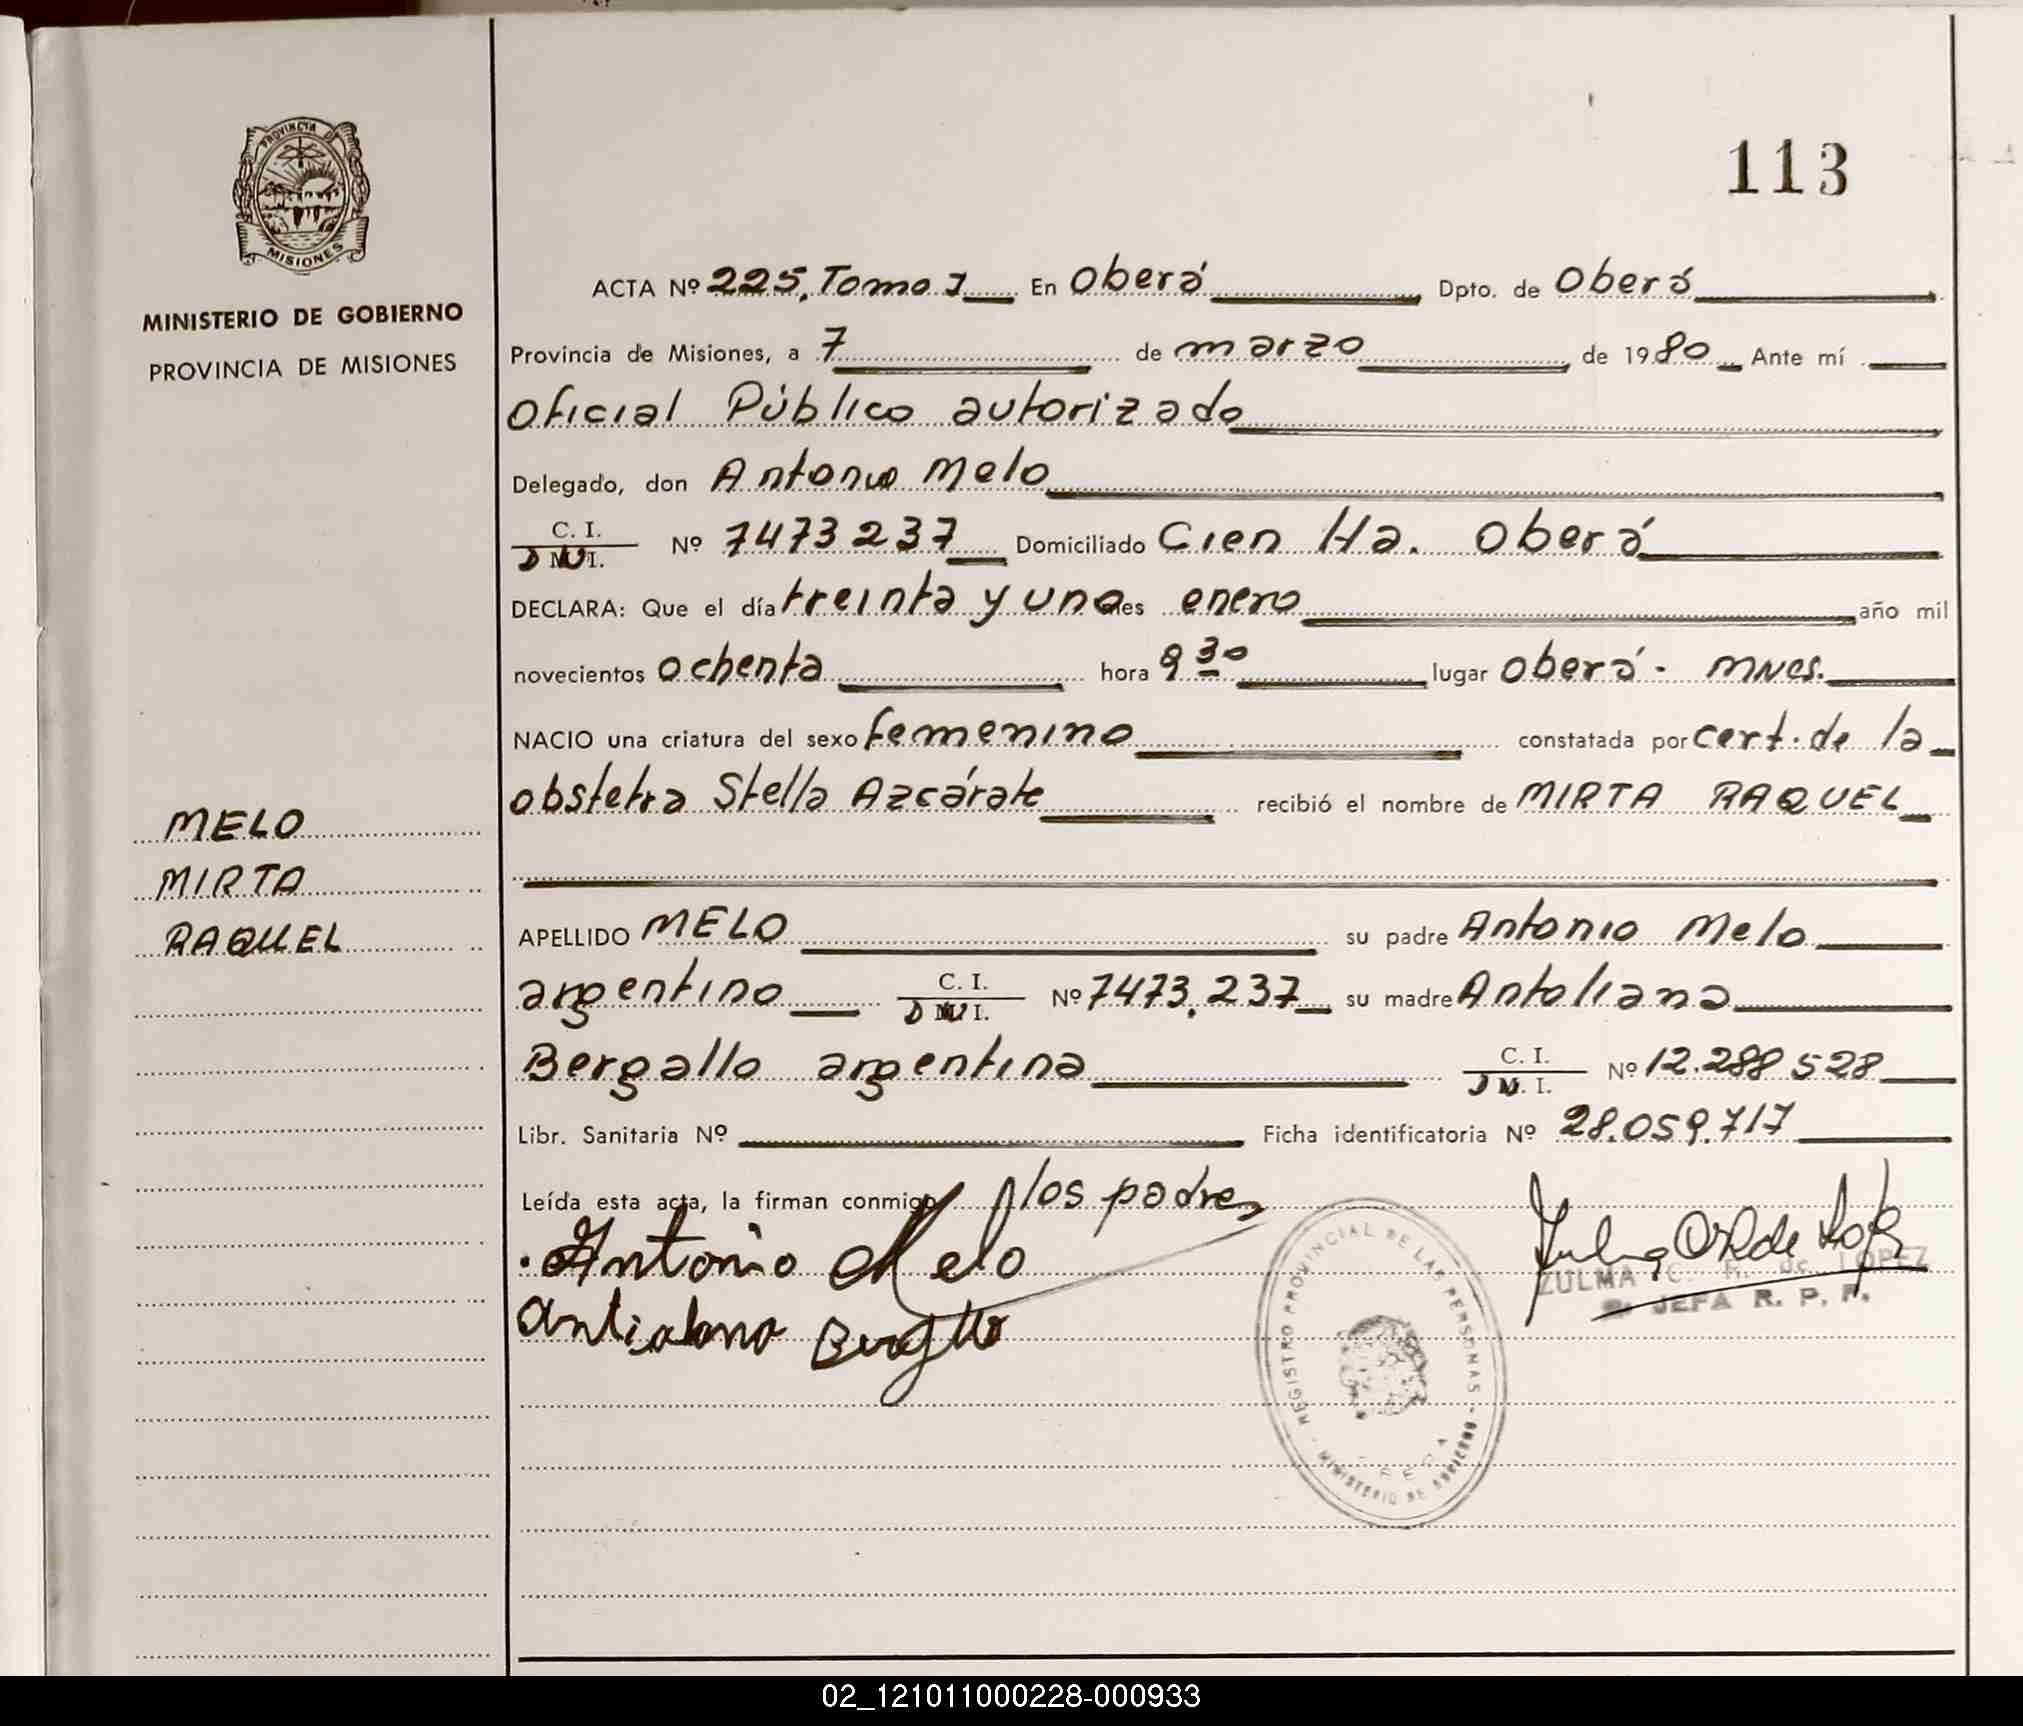 PROVINCIA DE
MISIONES
MINISTERIO DE GOBIERNO
PROVINCIA DE MISIONES
MELO
MIRTA
RAQUEL
113
ACTA Nº 225, Tomo I En Oberá Dpto. de Oberá
Provincia de Misiones, a 7 de marzo de 1980 Ante mí
Oficial Público autorizado
Delegado, don Antonio Melo
C. I. D N I. Nº 7473237 Domiciliado Cien Ha. Oberá
DECLARA: Que el día treinta y uno mes enero año mil
novecientos ochenta hora 9 30 lugar Oberá - Mnes.
NACIO una criatura del sexo femenino constatada por cert. de la
obstetra Stella Azcárate recibió el nombre de MIRTA RAQUEL
APELLIDO MELO su padre Antonio Melo
argentino C. I. D N I. Nº 7473.237 su madre Antoliana
Bergallo argentina C. I. D N. I. Nº 12.288 528
Libr. Sanitaria Nº Ficha identificatoria Nº 28.059.717
Leída esta acta, la firman conmigo los padres
Antonio Melo
REGISTRO PROVINCIAL DE LAS PERSONAS - MINISTERIO DE GOBIERNO
ZULMA C. R. de LOPEZ
JEFA R. P. P.
02_121011000228-000933